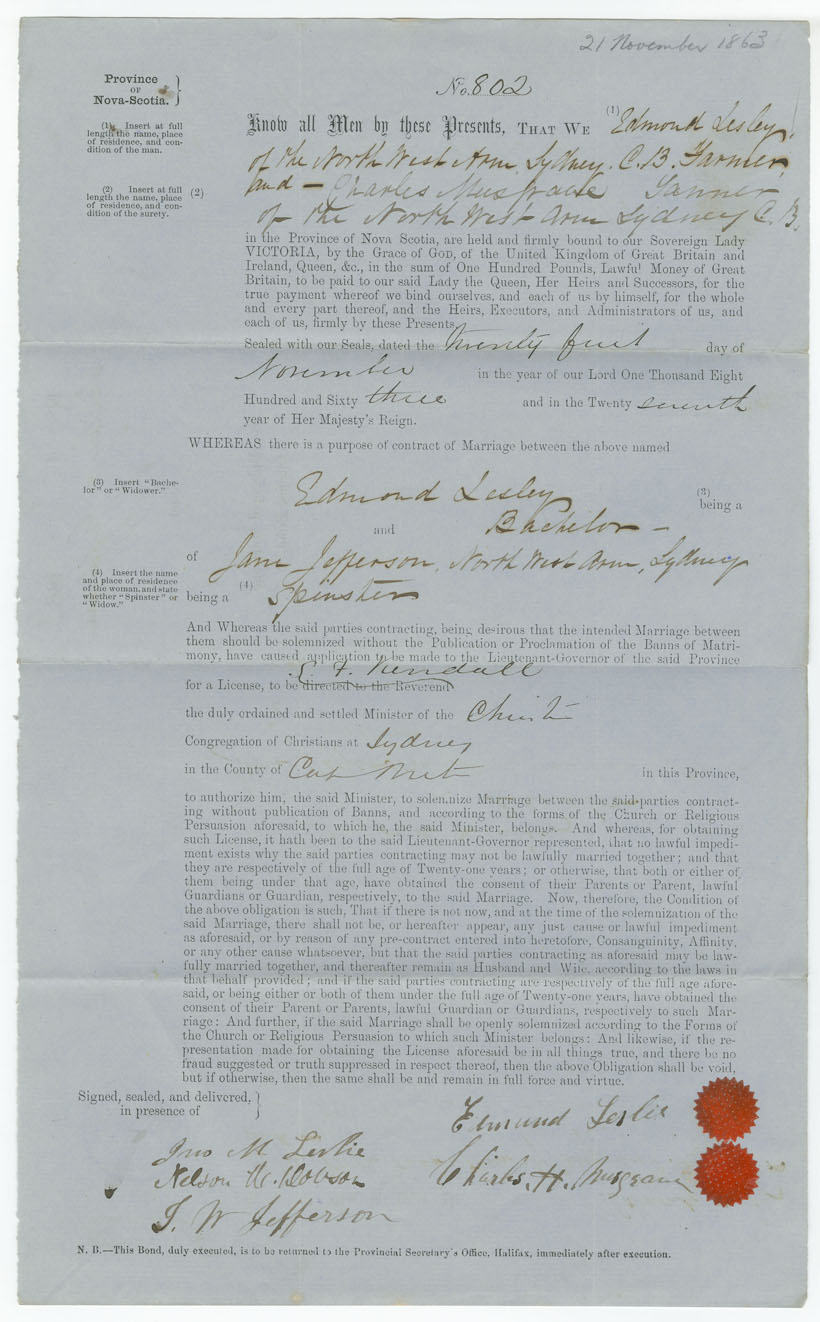 21 November 1863
Province
OF
Nova-Scotia.
No. 802
(1) Insert at full
length the name, place
of residence, and con-
dition of the man.
Know all Men by these Presents, THAT WE (1) Edmond Lesley,
of the North West Arm, Sydney. C. B. Farmer,
(2) Insert at full
length the name, place
of residence, and con-
dition of the surety.
(2) and – Charles Musgrave Tanner
of the North West Arm Sydney C. B.
in the Province of Nova Scotia, are held and firmly bound to our Sovereign Lady
VICTORIA, by the Grace of GOD, of the United Kingdom of Great Britain and
Ireland, Queen, &c., in the sum of One Hundred Pounds, Lawful Money of Great
Britain, to be paid to our said Lady the Queen, Her Heirs and Successors, for the
true payment whereof we bind ourselves, and each of us by himself, for the whole
and every part thereof, and the Heirs, Executors, and Administrators of us, and
each of us, firmly by these Presents.
Sealed with our Seals, dated the twenty first day of
November in the year of our Lord One Thousand Eight
Hundred and Sixty three and in the Twenty seventh
year of Her Majesty's Reign.
WHEREAS there is a purpose of contract of Marriage between the above named
(3) Insert "Bache-
lor" or "Widower."
Edmond Lesley (3) being a
and Bachelor –
of Jane Jefferson, North West Arm, Sydney
(4) Insert the name
and place of residence
of the woman, and state
whether "Spinster" or
"Widow."
being a (4) Spinster
And Whereas the said parties contracting, being desirous that the intended Marriage between
them should be solemnized without the Publication or Proclamation of the Banns of Matri-
mony, have caused application to be made to the Lieutenant-Governor of the said Province
F. Kendall
for a License, to be directed to the Reverend
the duly ordained and settled Minister of the
Congregation of Christians at Sydney
in the County of in this Province,
to authorize him, the said Minister, to solemnize Marriage between the said parties contract-
ing without publication of Banns, and according to the forms of the Church or Religious
Persuasion aforesaid, to which he, the said Minister, belongs. And whereas, for obtaining
such License, it hath been to the said Lieutenant-Governor represented, that no lawful impedi-
ment exists why the said parties contracting may not be lawfully married together; and that
they are respectively of the full age of Twenty-one years; or otherwise, that both or either of
them being under that age, have obtained the consent of their Parents or Parent, lawful
Guardians or Guardian, respectively, to the said Marriage. Now, therefore, the Condition of
the above obligation is such, That if there is not now, and at the time of the solemnization of the
said Marriage, there shall not be, or hereafter appear, any just cause or lawful impediment
as aforesaid, or by reason of any pre-contract entered into heretofore, Consanguinity, Affinity,
or any other cause whatsoever, but that the said parties contracting as aforesaid may be law-
fully married together, and thereafter remain as Husband and Wife, according to the laws in
that behalf provided; and if the said parties contracting are respectively of the full age afore-
said, or being either or both of them under the full age of Twenty-one years, have obtained the
consent of their Parent or Parents, lawful Guardian or Guardians, respectively to such Mar-
riage: And further, if the said Marriage shall be openly solemnized according to the Forms of
the Church or Religious Persuasion to which such Minister belongs: And likewise, if the re-
presentation made for obtaining the License aforesaid be in all things true, and there be no
fraud suggested or truth suppressed in respect thereof, then the above Obligation shall be void,
but if otherwise, then the same shall be and remain in full force and virtue.
Signed, sealed, and delivered,
in presence of
Edmund Leslie
Jno M Leslie
Nelson W. Dobson
Charles. H. Musgrave
J. W Jefferson
N. B.—This Bond, duly executed, is to be returned to the Provincial Secretary's Office, Halifax, immediately after execution.